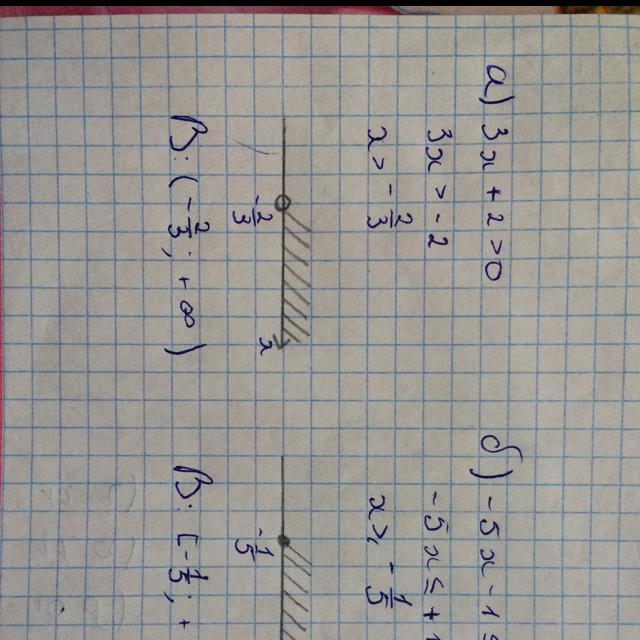 а) 3x + 2 > 0
3x > - 2
x > - 2/3
- 2/3
x
В: (- 2/3; + ∞)
б) - 5x - 1 ≤
- 5x ≤ + 1
x ≥ - 1/5
- 1/5
В: [- 1/5; +